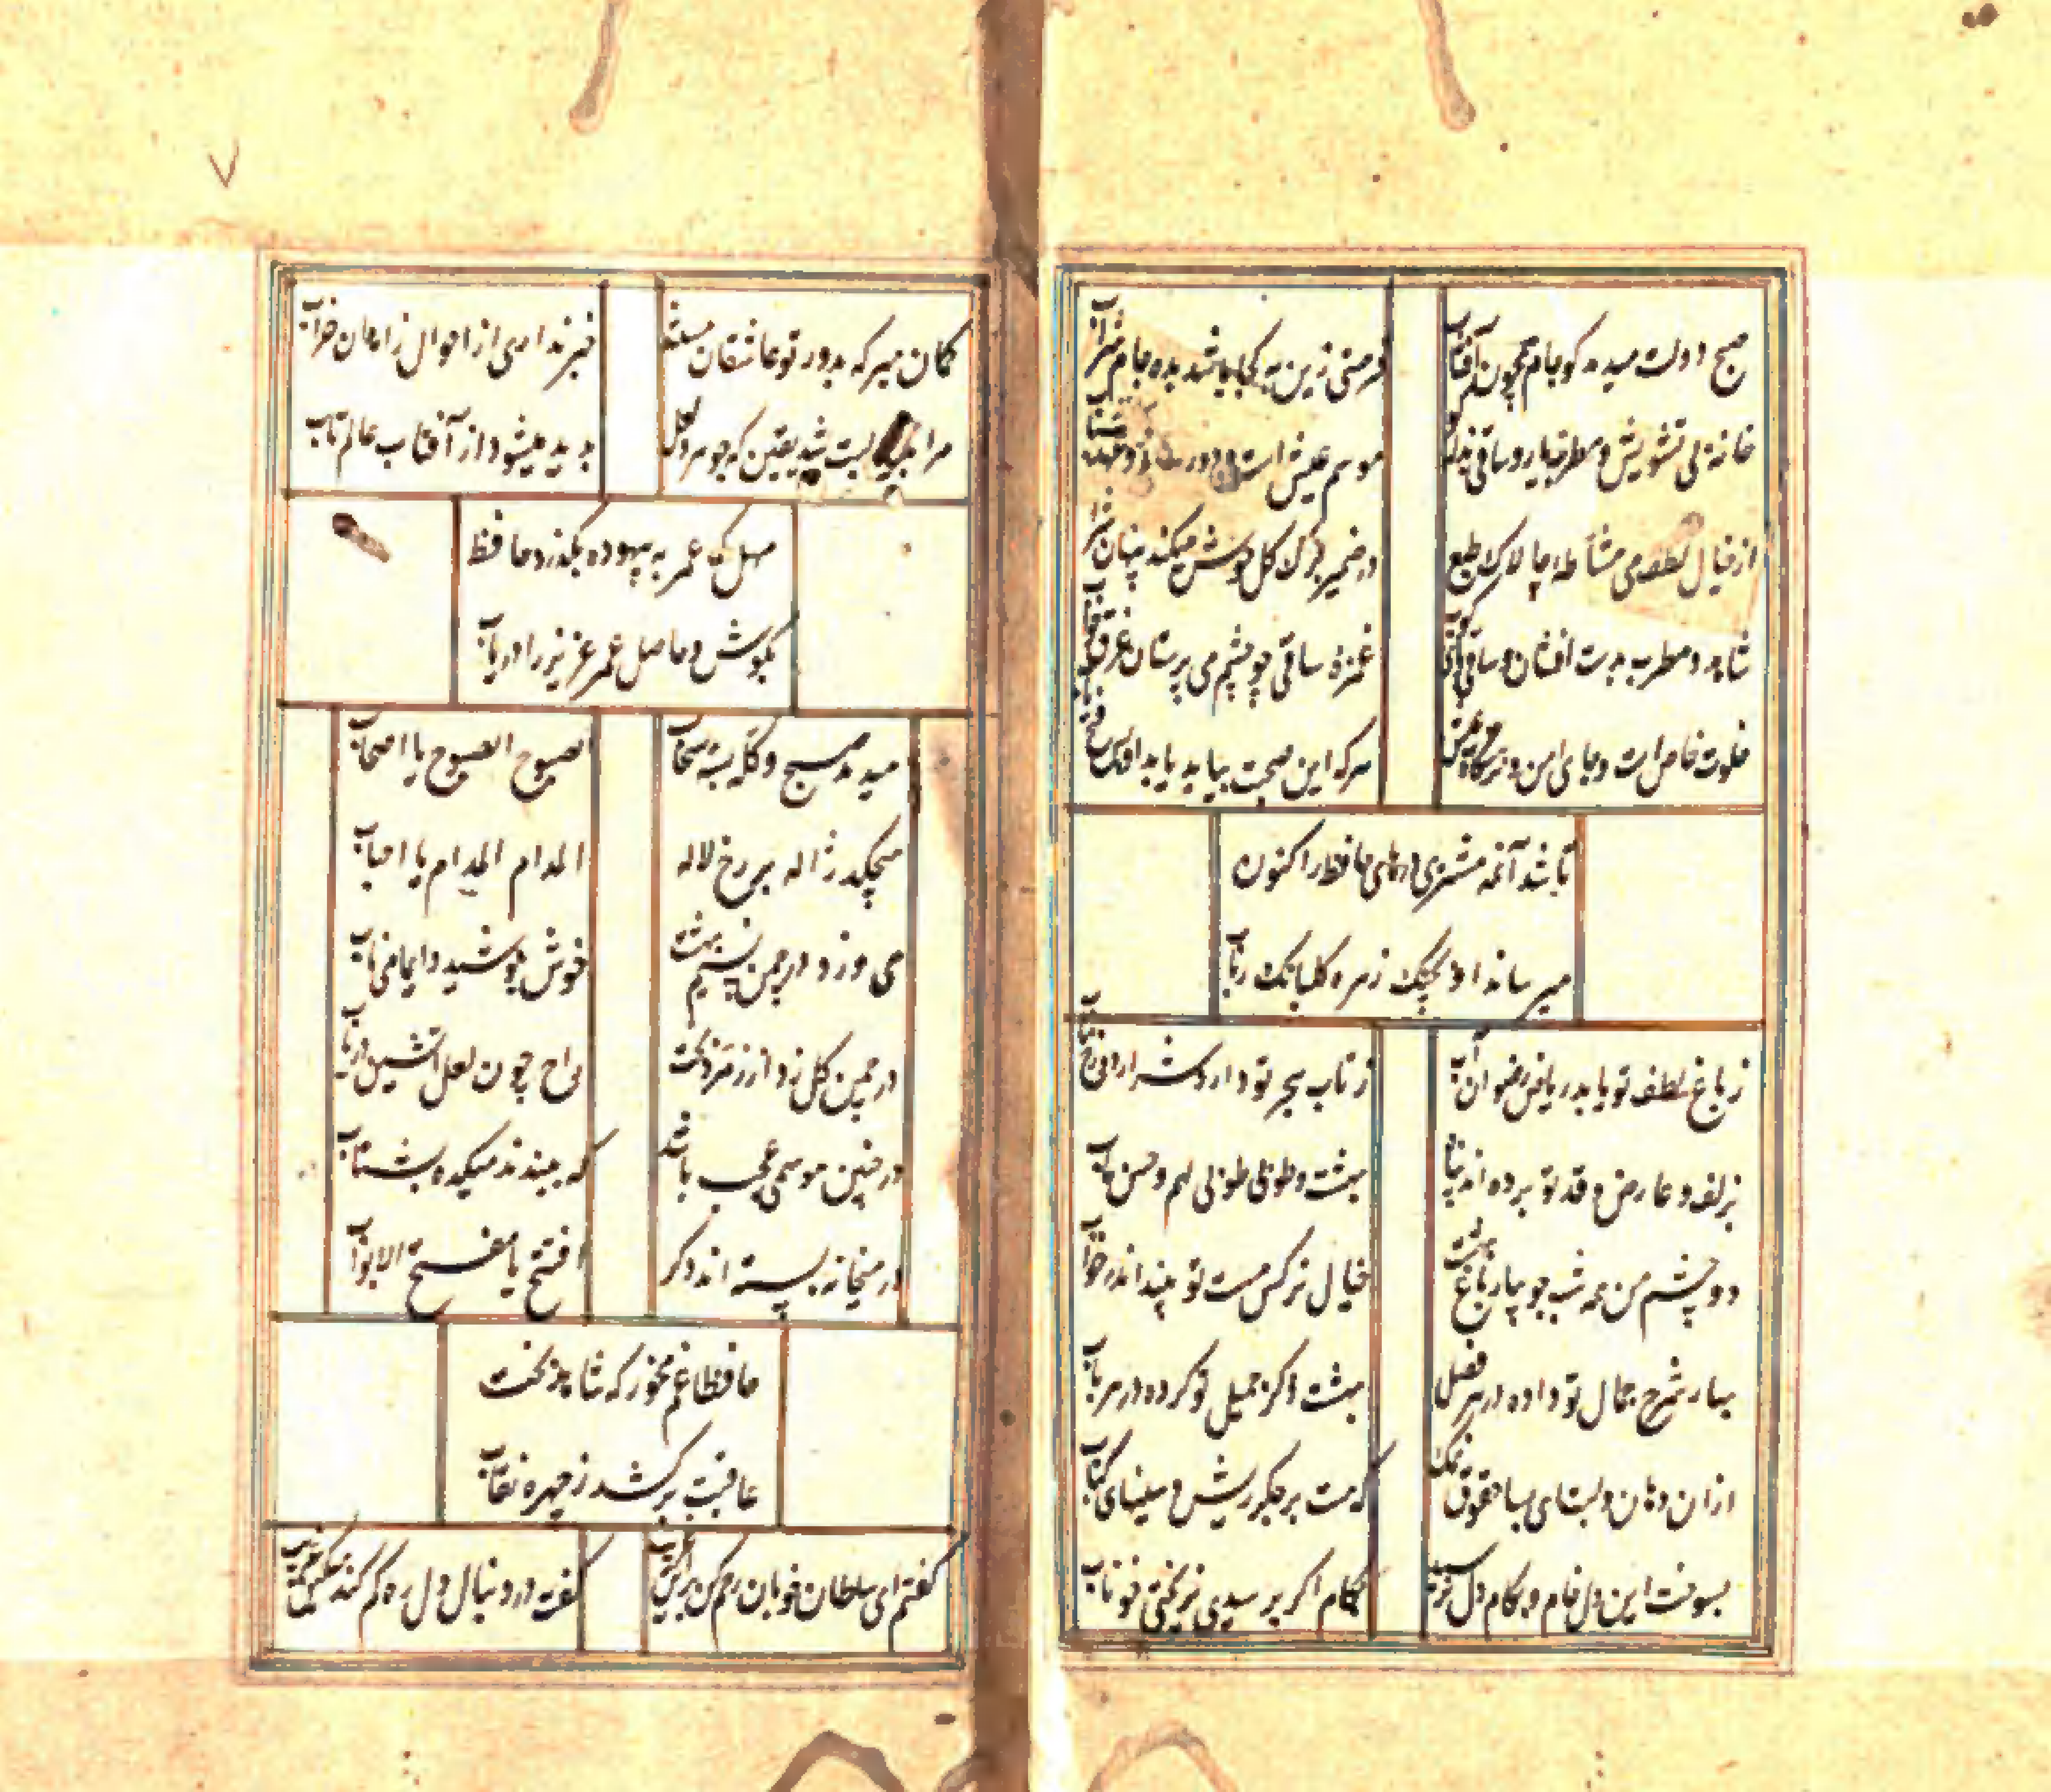 صبح دولت میدمد کو جام همچون آفتاب
فرصتی زین به کجا باشد بده جام شراب
خانه بی تشویش و مطرب یار و ساقی بذله کو
موسم عیش است و دور ساغر و عهد شباب
از خیال لطف می مشاطه چالاک طبع
در ضمیر برک کل خوش میکند پنهان کلاب
شاهد و مطرب بدست افشان و ساقی پای کوب
غمزه ساقی چو چشم می پرستان
خلوت خاص است و جای امن و نزهتکاه عیش
هرکه این صحبت بیابد یابد او
تا شد آن مه مشتری درهای حافظ را کنون
میرساند او بچنک زهره کلبانک رباب
ز باغ لطف تو یابد ریاض رضوان آب
ز تاب هجر تو دارد شرار دوزخ تاب
بزلف و عارض و قد تو برده اند پناه
بهشت و طوبی طوبی لهم و حسن مآب
دو چشم من همه شب جویبار باغ بهشت
خیال نرکس مست تو بیند اندر خواب
بهار شرح جمال تو داده در هر فصل
بهشت ذکر جمیل تو کرده در هر باب
ازان دهان و لبت ای بسا حقوق نمک
که هست بر جکر ریش و سینهای کباب
بسوخت این دل خام و بکام دل نرسید
بکام اکر برسیدی نریختی خوناب
کمان مبر که بدور تو عاشقان مستند
خبر نداری از احوال زاهدان خراب
مرا لبت شد یقین که جوهر لعل
پدید میشود از آفتاب عالم تاب
مهل که عمر به بیهوده بکذرد حافظ
بکوش و حاصل عمر عزیز را دریاب
میدمد صبح و کله بست سحاب
الصبوح الصبوح یا اصحاب
میچکد ژاله بر رخ لاله
المدام المدام یا احباب
می وزد در چمن نسیم بهشت
خوش بنوشید دایما می ناب
در چمن کل زد از زمرد تخت
راح چون لعل آتشین دریاب
در چنین موسمی عجب باشد
که ببندند میکده بشتاب
در میخانه بسته اند دکر
افتتح یا مفتح الابواب
حافظا غم مخور که شاهد بخت
عاقبت بر کشد ز چهره نقاب
کفتم ای سلطان خوبان رحم کن بر این غریب
کفت در دنبال دل ره کم کند مسکین غریب